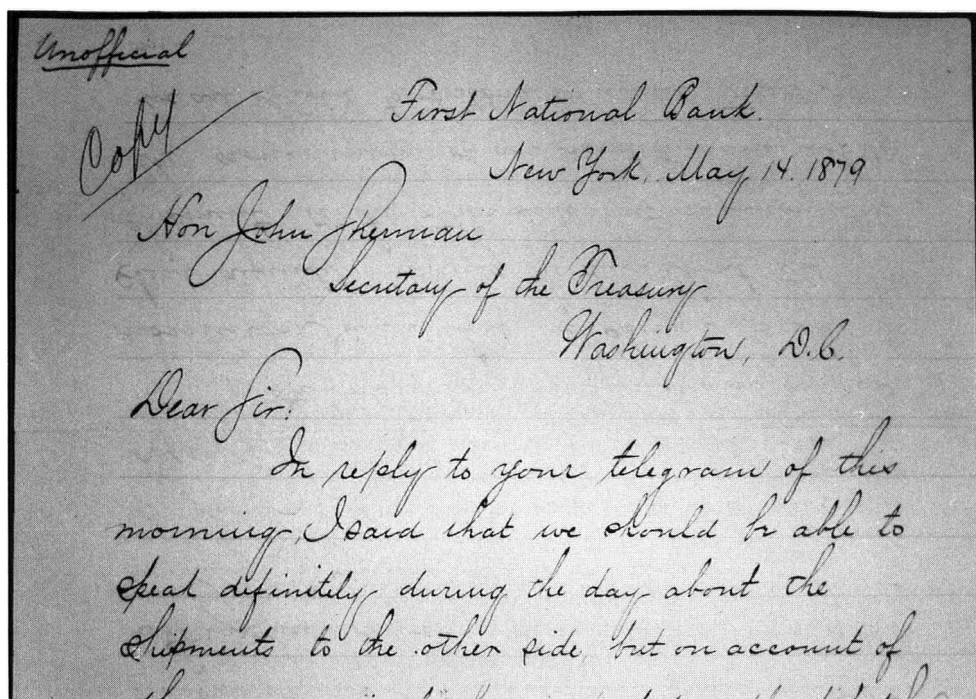 Unofficial
Copy
First National Bank.
New York, May 14. 1879
Hon John Sherman
Secretary of the Treasury
Washington, D.C.
Dear Sir:
In reply to your telegram of this
morning, I said that we should be able to
speak definitely during the day about the
shipments to the other side, but on account of